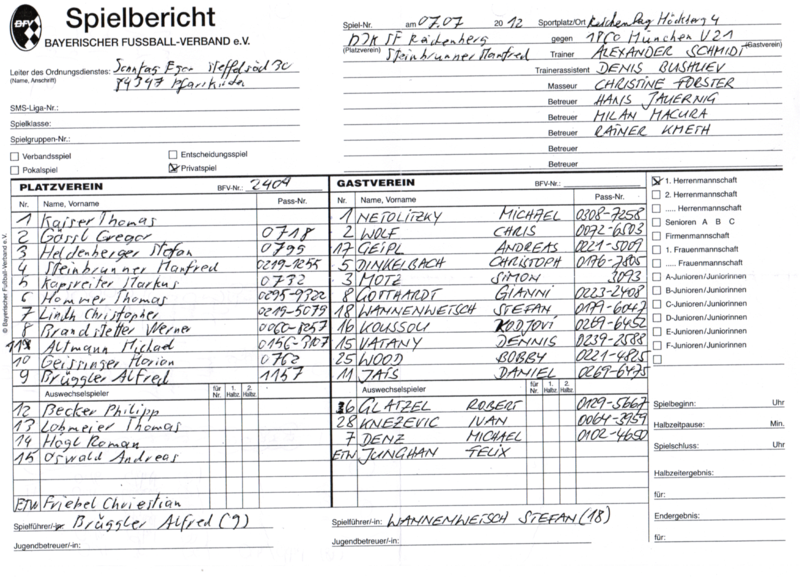 Spielbericht
BAYERISCHER FUSSBALL-VERBAND e.V.
Spiel-Nr. am 07.07 2012 Sportplatz/Ort Reichenberg Höckberg 4
DJK SF Reichenberg gegen 1860 München U21
(Platzverein) Steinbrunner Manfred (Gastverein)
Trainer ALEXANDER SCHMIDT
Trainerassistent DENIS BUSHUEV
Masseur CHRISTINE FÖRSTER
Betreuer HANS JAUERNIG
Betreuer MILAN MACURA
Betreuer RAINER KMETH
Betreuer
Betreuer
Leiter des Ordnungsdienstes: Sonntag Egon
(Name, Anschrift) 84347 Pfarrkirchen
SMS-Liga-Nr.:
Spielklasse:
Spielgruppen-Nr.:
Verbandsspiel Entscheidungsspiel
Pokalspiel Privatspiel
PLATZVEREIN BFV-Nr.: 2404
Nr. Name, Vorname Pass-Nr.
1 Kaiser Thomas
2 Gössl Gregor 0718
3 Heldenberger Stefan 0795
4 Steinbrunner Manfred 0219-1255
5 Kapsreiter Markus 0732
6 Hommer Thomas 0295-9322
7 Lindh Christopher 0219-5079
8 Brandstetter Werner 0060-8257
11 Altmann Michael 0156-3107
10 Geissinger Marion 0762
9 Brüggler Alfred 1157
Auswechselspieler für Nr. 1. Halbz. 2. Halbz.
12 Becker Philipp
13 Lohmeier Thomas
14 Högl Roman
15 Oswald Andreas
ETW Friebel Chriestian
Spielführer/-in: Brüggler Alfred (9)
Jugendbetreuer/-in:
GASTVEREIN BFV-Nr.:
Nr. Name, Vorname Pass-Nr.
1 NETOLITZKY MICHAEL 0308-7258
2 WOLF CHRIS 0072-6503
17 GEIPL ANDREAS 0221-5009
5 DINKELBACH CHRISTOPH 0176-7805
3 MOTZ SIMON 3093
8 GOTTHARDT GIANNI 0223-2408
18 WANNENWETSCH STEFAN 0179-6047
16 KOUSSOU KODJOVI 0269-6452
15 VATANY DENNIS 0239-2588
25 WOOD BOBBY 0221-4825
11 JAIS DANIEL 0269-6475
Auswechselspieler für Nr. 1. Halbz. 2. Halbz.
36 GLATZEL ROBERT 0129-5667
28 KNEZEVIC IVAN 0064-3959
7 DENZ MICHAEL 0102-4650
ETW JUNGHAN FELIX
Spielführer/-in: WANNENWETSCH STEFAN (18)
Jugendbetreuer/-in:
1. Herrenmannschaft
2. Herrenmannschaft
..... Herrenmannschaft
Senioren A B C
Firmenmannschaft
1. Frauenmannschaft
..... Frauenmannschaft
A-Junioren/Juniorinnen
B-Junioren/Juniorinnen
C-Junioren/Juniorinnen
D-Junioren/Juniorinnen
E-Junioren/Juniorinnen
F-Junioren/Juniorinnen
Spielbeginn: Uhr
Halbzeitpause: Min.
Spielschluss: Uhr
Halbzeitergebnis:
für:
Endergebnis:
für:
© Bayerischer Fussball-Verband e.V.